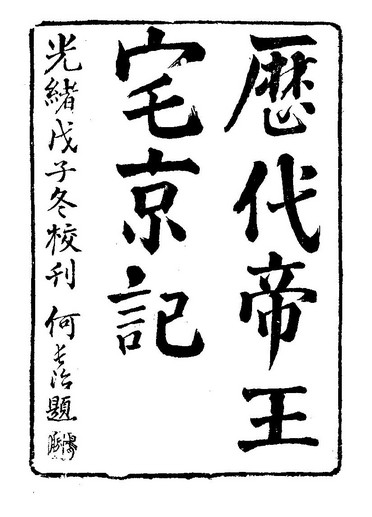 歷代帝王
宅京記
光緒戊子冬校刊 何長治題